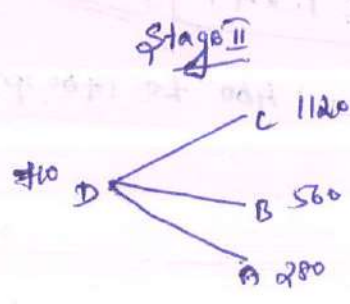 Stage II
C 1120
D
B 560
A 280